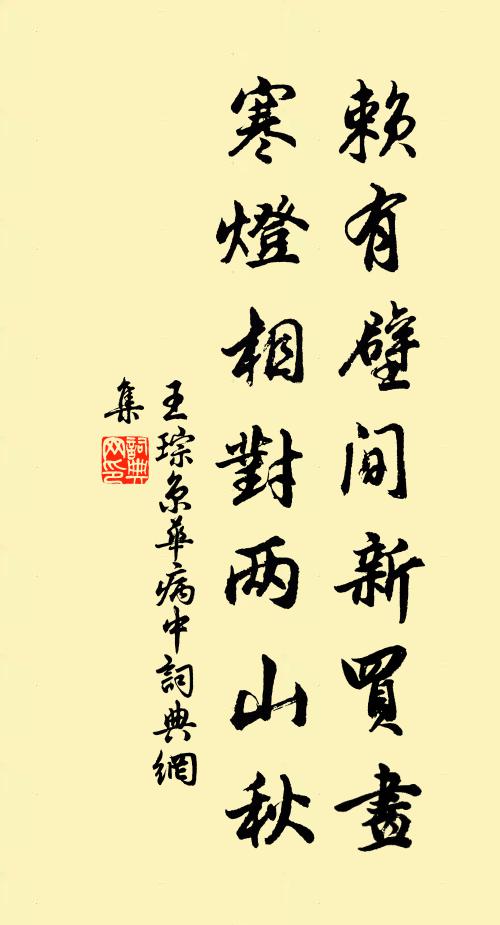 賴有壁間新買畫
寒燈相對两山秋
王琮京華病中詞典網
集
詞典網印